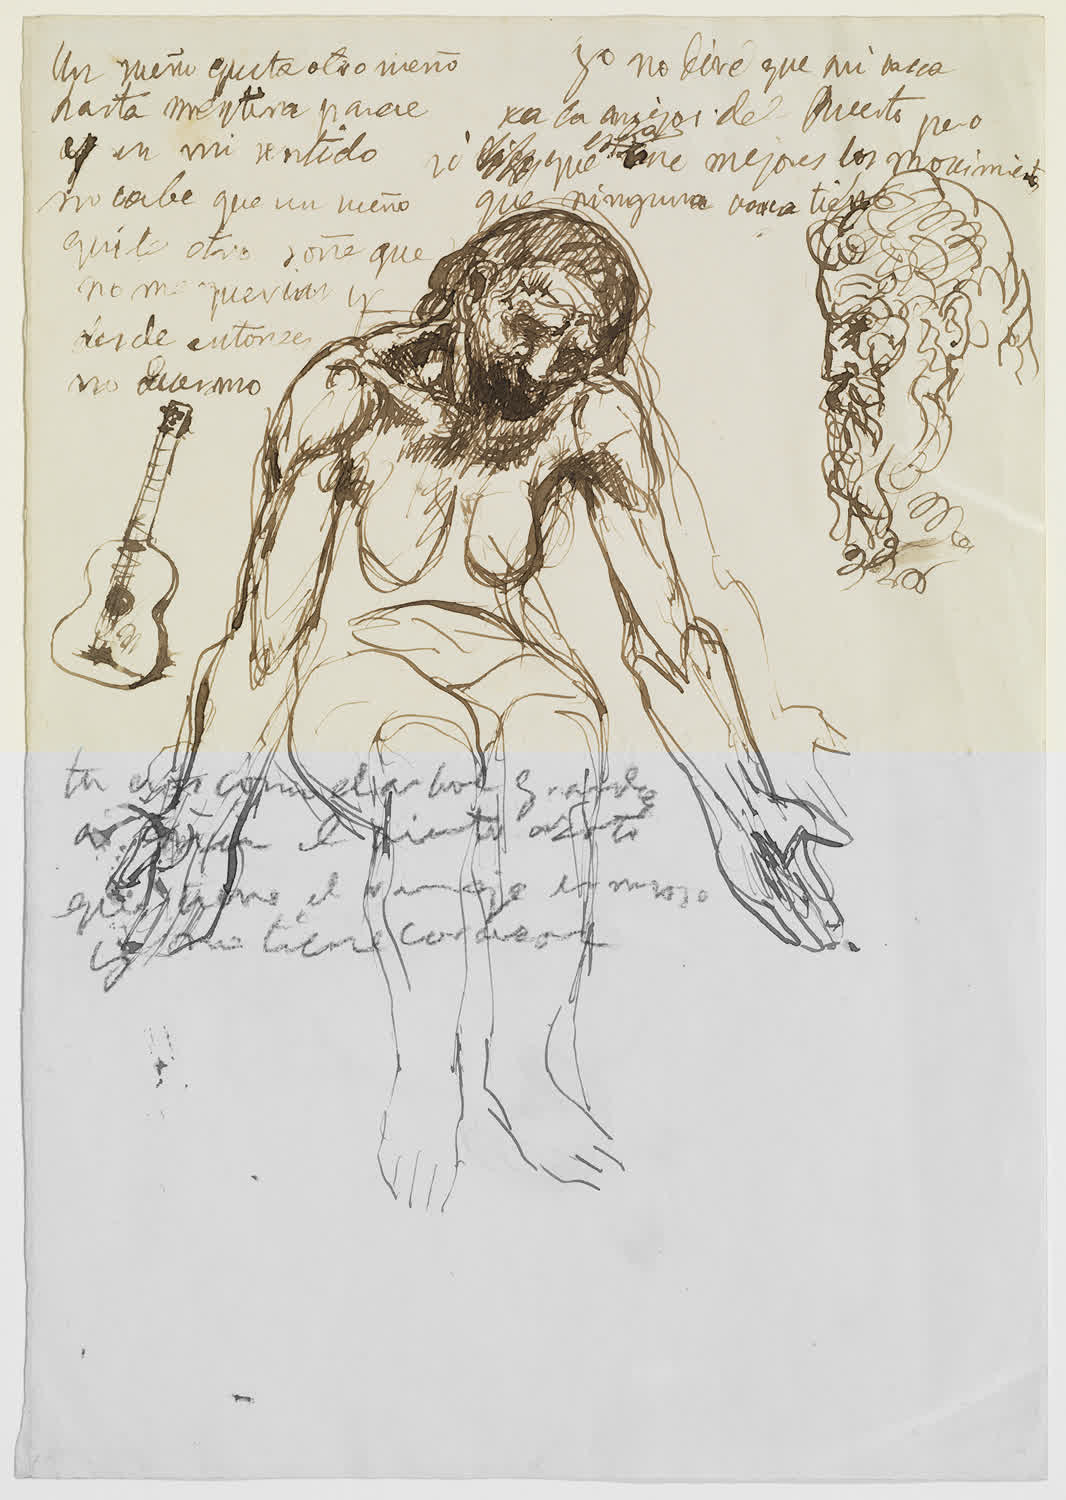 Un sueño quita otro sueño
hasta mentira parece
y en mi sentido
no cabe que un sueño
quite otro soñe que
no me querias y
desde entonses
no duermo
yo no diré que mi vaca
sea la mejor del Puerto pero
si que tiene mejores los movimientos
que ninguna vaca tiene
tu eres como el arbol grande
el viento azota
que tiene el ramaje ermoso
y no tiene corason